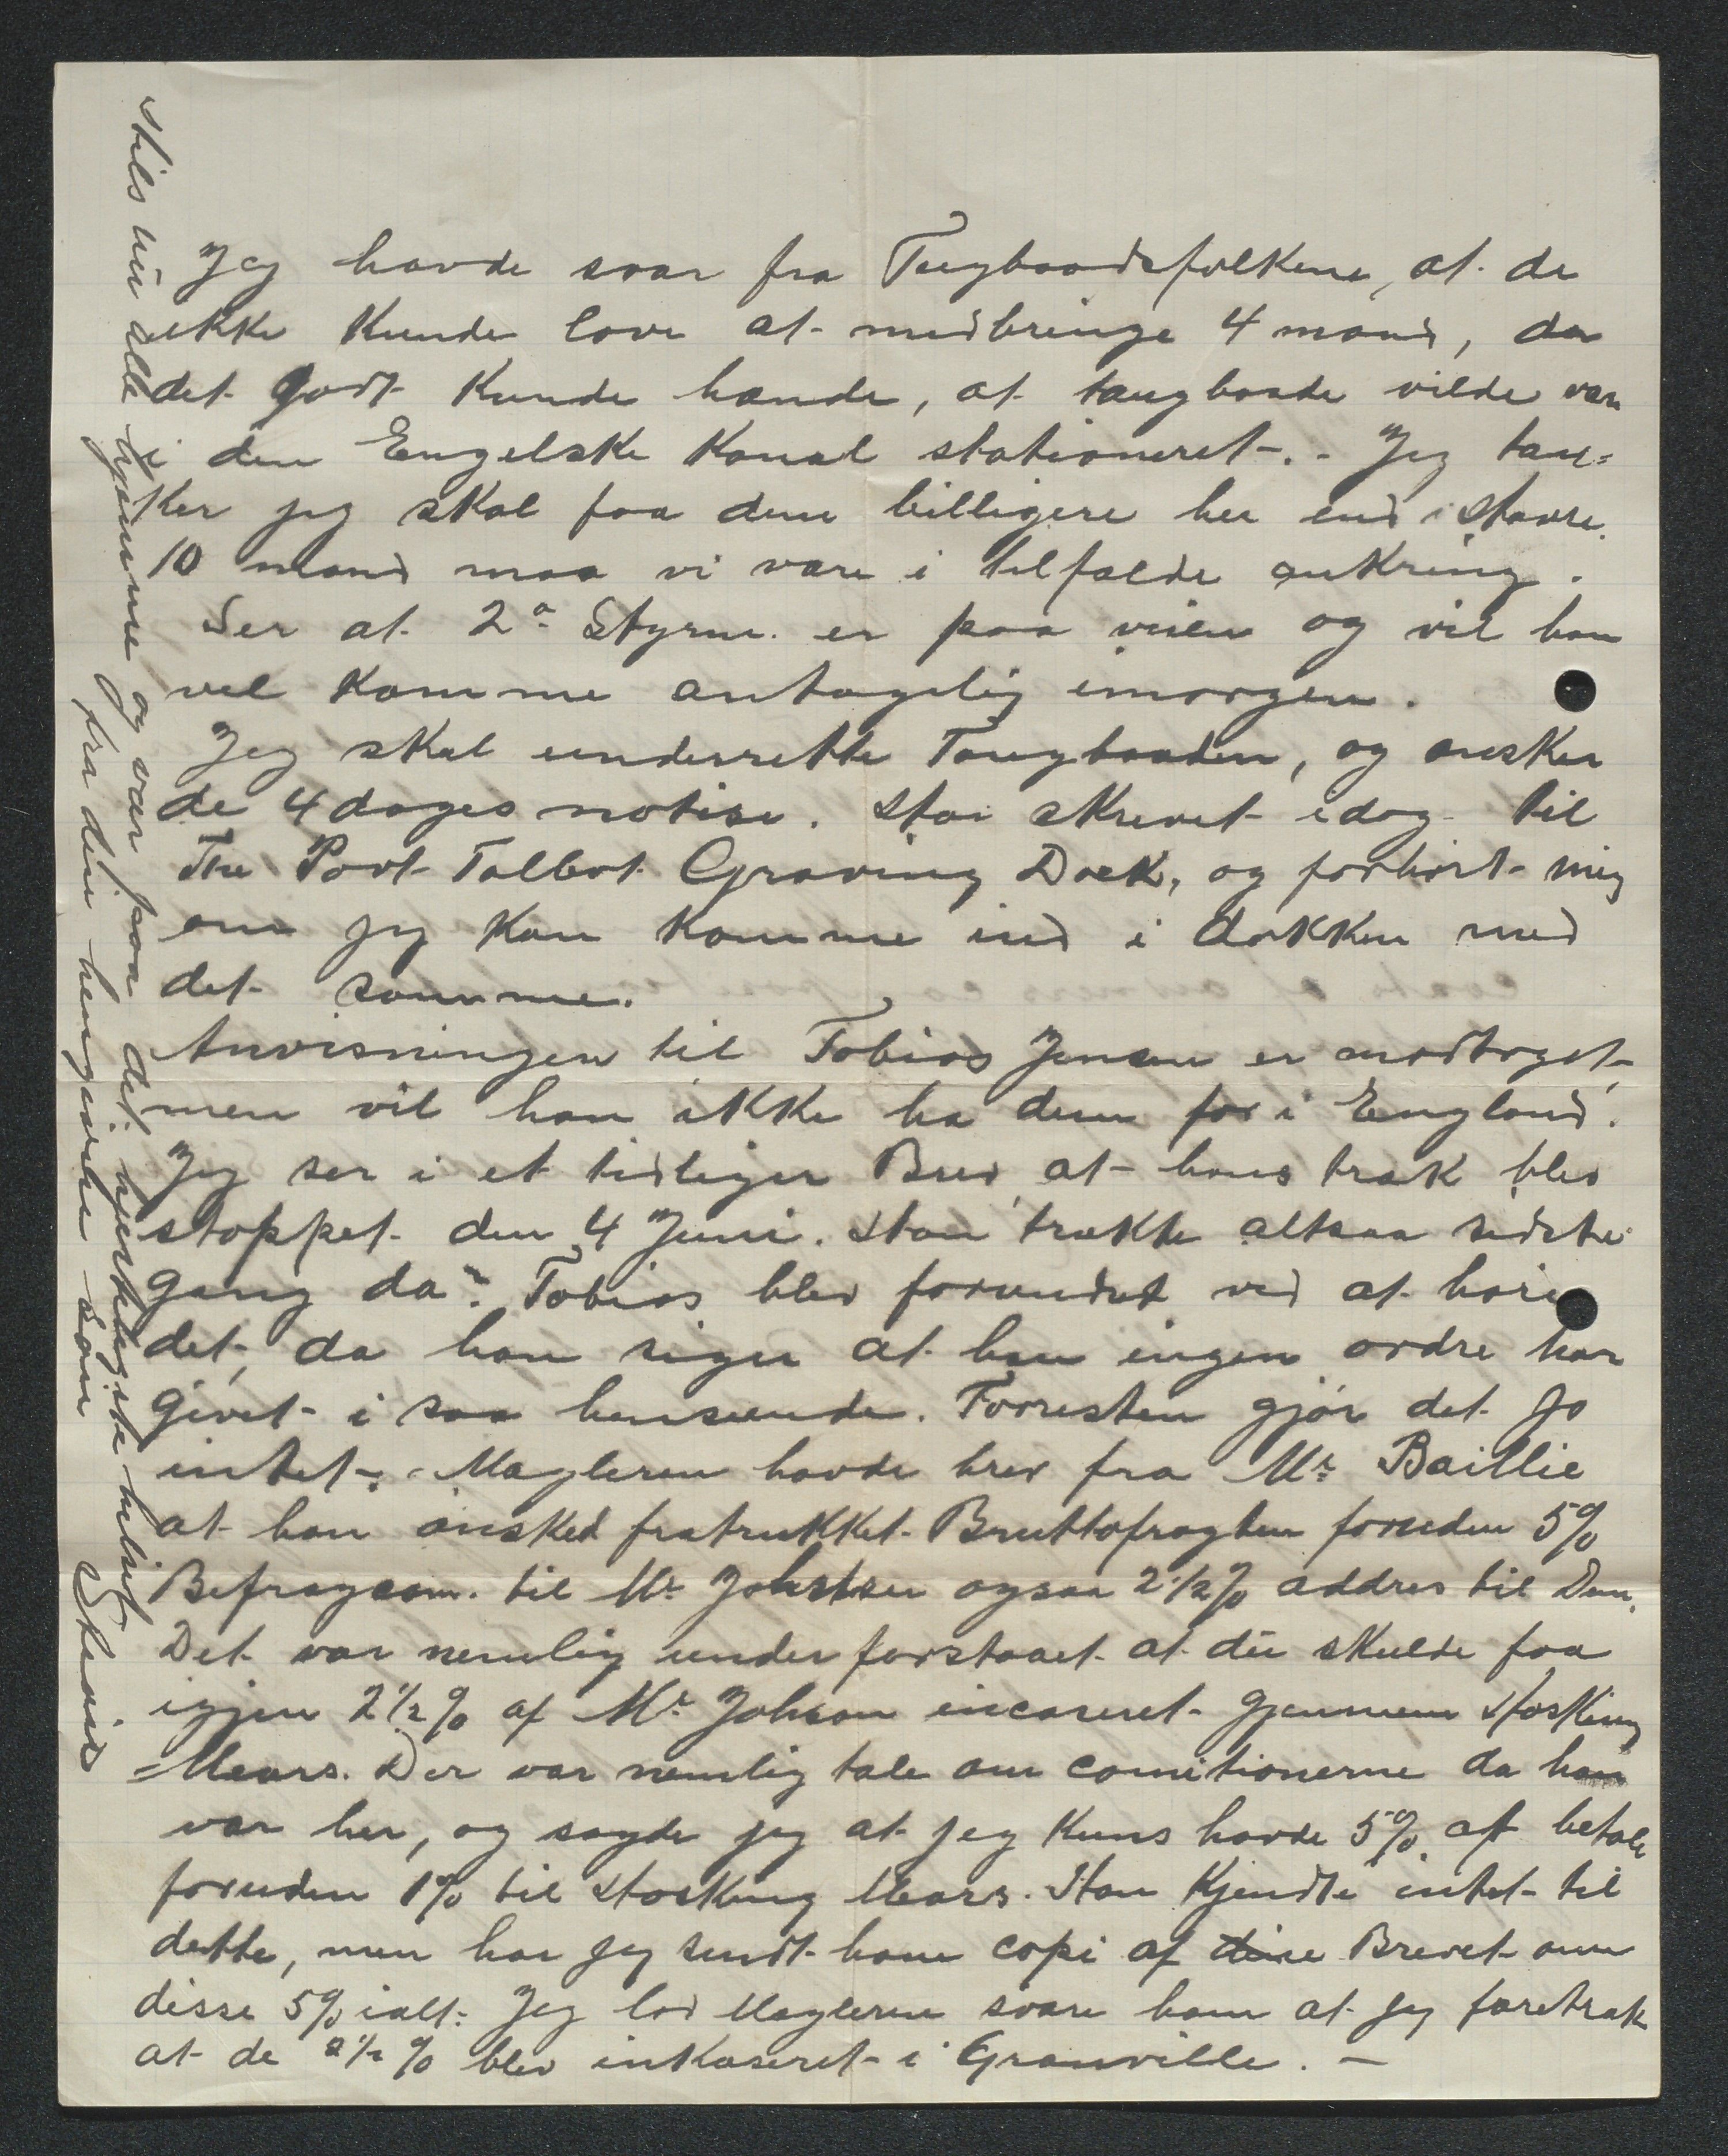 Jeg havde svar fra Tugboadsfolkene, at de
ikke kunde love at medbringe 4 mand, da
det godt kunde hænde, at taugbaade vilde være
i den Engelske Kanal stationeret. - Jeg tæn=
ker jeg skal faa dem billigere her end i Havre.
10 mand maa vi være i tilfælde ankring.
Ser at 2ª Styrm. er paa veien og vil han
vel komme antagelig imorgen.
Jeg skal underrette Taugbaaden, og ønsker
de 4 dages notise. Har skrevet idag til
The Port Talbot Graving Dock, og forhørt mig
om jeg kan komme ind i dokken med
det samme.
Anvisningen til Tobias Jensen er modtaget,
men vil han ikke ha dem før i England.
Jeg ser i et tidliger Brev, at hans træk blev
stoppet den 4 Juni. Han trækte altsaa sidste
gang da. Tobias blev forundret ved at høre
det, da han siger at han ingen ordre har
givet i saa henseende. Forresten gjør det jo
intet. - Mægleren havde brev fra Mr. Baillie
at han ønsked fratrukket Bruttofragten foruden 5%
Befragcom. til Mr. Johnson ogsaa 2½% addres til Dem.
Det var nemlig underforstaaet at du skulde faa
igjen 2½% af Mr. Johnson incaseret gjennem Hosking
Mears. Der var nemlig tale om comitionerne da han
var her, og sagde jeg at jeg kuns havde 5% at betale
foruden 1% til Hosking Mears. Han kjendte intet til
dette, men har jeg sendt ham copi af dine Brevet om
disse 5% ialt. Jeg lod Mægleren svare ham at jeg foretrak
at de 2½% blev inkaseret i Granville. —
Hils nu alle hjemme og vær paa det hjerteligste hilset
fra din hengivne søn